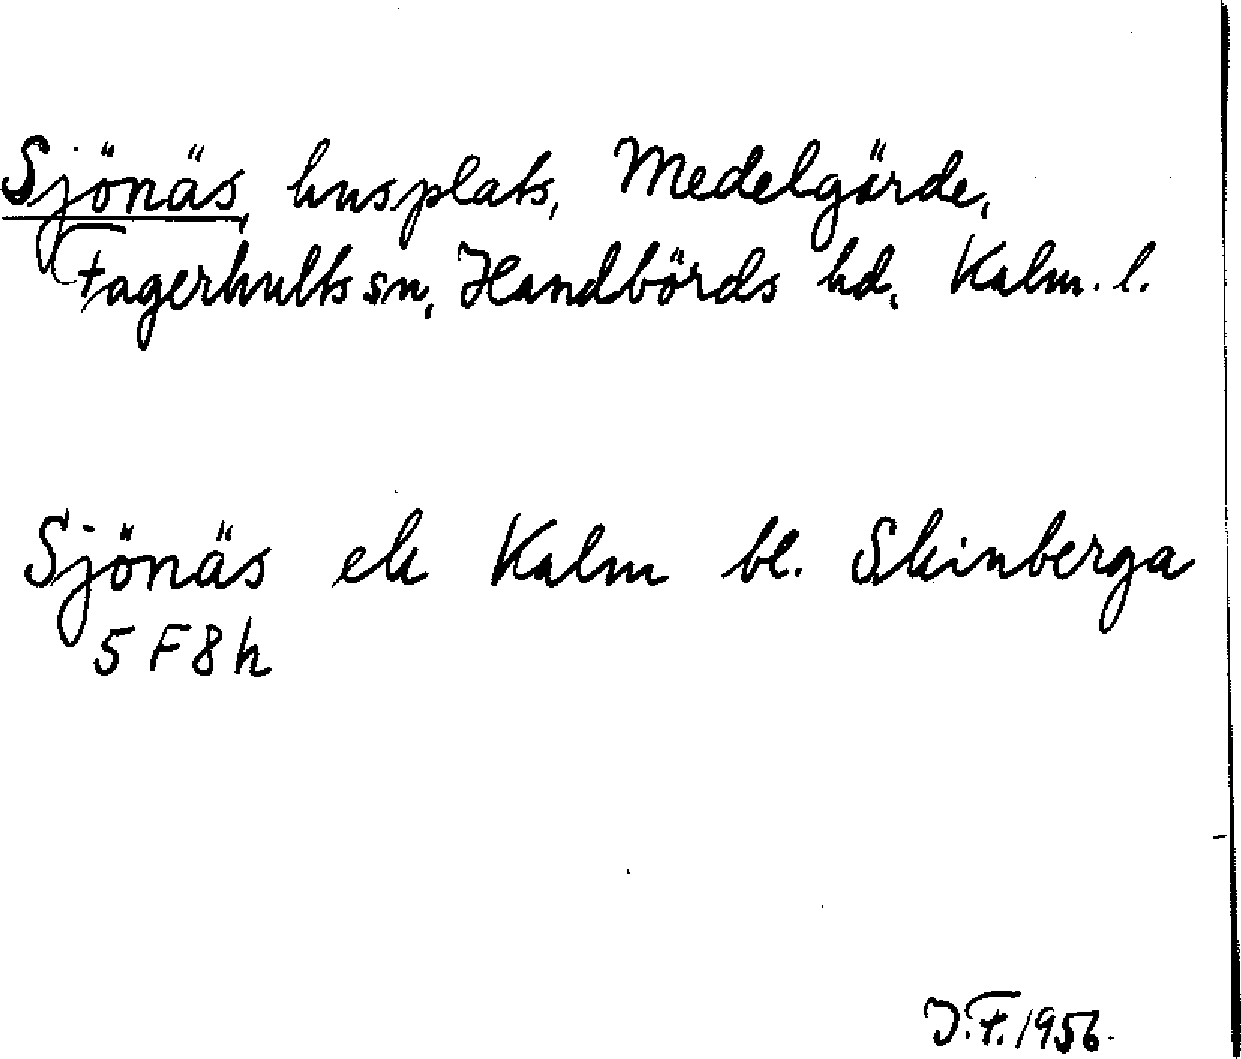 Sjönäs, husplats, Medelgärde,
Fagerhults sn, Handbörds hd, Kalm. l.
Sjönäs ek Kalm bl. Skinberga
5 F 8 h
J.F. 1956.